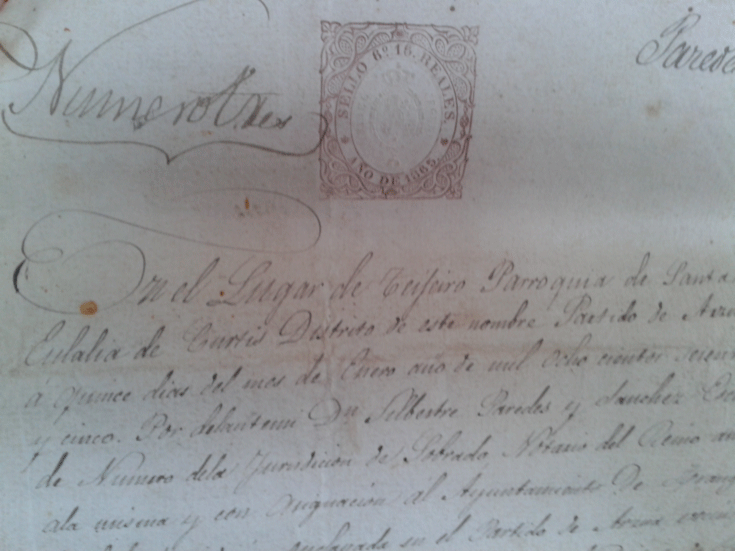 Numero tres
SELLO 6º 16. REALES.
AÑO DE 1865.
Parede
En el Lugar de Teijeiro Parroquia de Santa
Eulalia de Curtis Distrito de este nombre Partido de
á quince dias del mes de Enero año de mil ocho cientos
y cinco. Por delante mi Dn Silbestre Paredes y Sanchez
de Numero dela Jurisdicion de Sobrado Notario del Reino
ala misma y con asignacion al Ayuntamiento De
en el Partido de Arzua